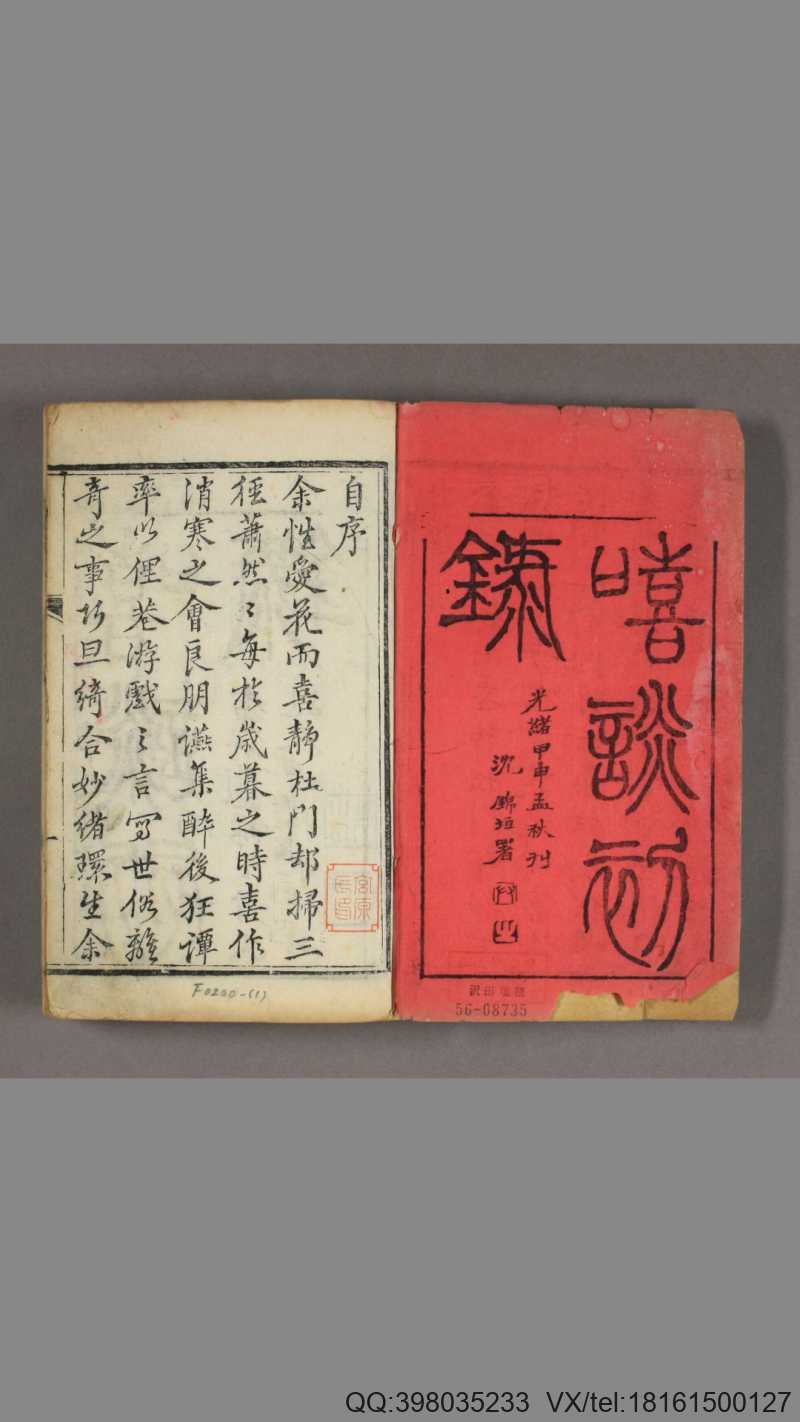 嘻談初
錄
光緒甲申孟秋刊
沈錦垣署
56-08735
自序
余性愛花而喜靜杜門却掃三
徑蕭然〻每於歲暮之時喜作
消寒之會良朋讌集醉後狂譚
率以俚巷游戲之言寫世俗離
奇之事巧旦綺合妙緒環生余
F0200-(1)
QQ:398035233 VX/tel:18161500127